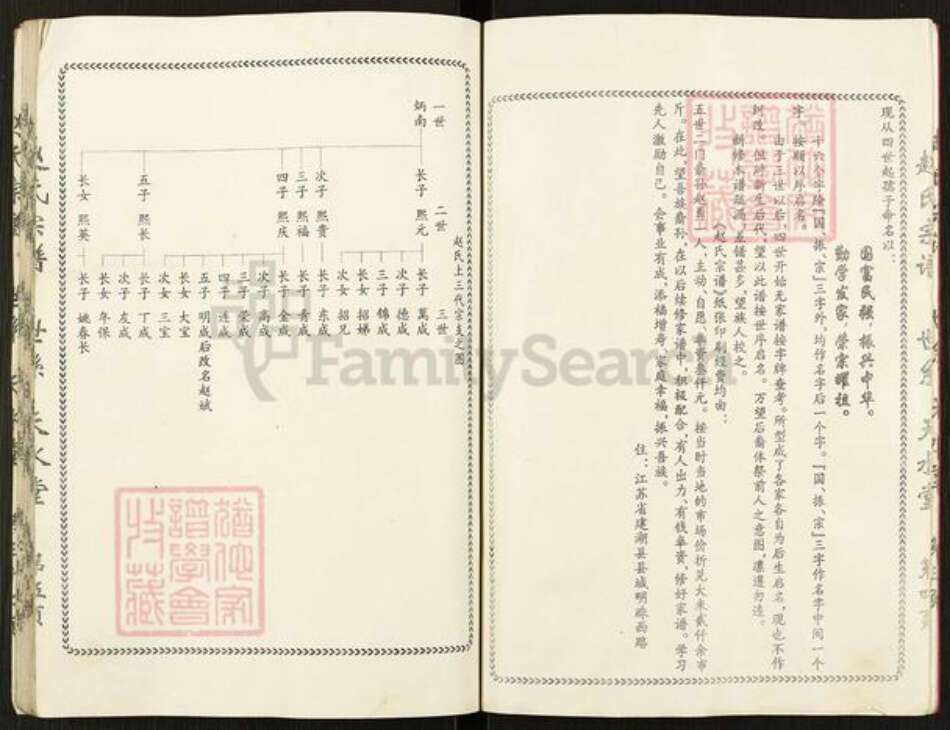 现从四世起孺子命名以:
国富民强,振兴中华。
勤学发家,荣宗耀祖。
十六个字除『国、振、宗』三字外,均作名字后一个字。『国、振、宗』三字作名字中间一个
字,按顺以序启名。
由于三世以后,四世开始无家谱按字牌查考。所型成了各家各自为后生启名,现也不作
纠改。但对新生后代,望以此谱按世序启名。万望后裔体祭前人之意图,凛遵勿违。
制修本谱疏漏,差错甚多,望族人校之。
《赵氏宗谱》纸张印刷经费均由:
五世二门裔孙赵勇一人,主动、自愿、奉资叁仟元。按当时当地的市场价折兑大米贰仟余市
斤。在此,望吾族裔孙,在以后续修家谱中,积极配合,有人出力、有钱奉资,修好家谱。学习
先人激励自己。会事业有成,添福增寿,家庭幸福,振兴吾族。
住:江苏省建湖县县城明珠西路
赵氏上三代宗支之图
一世 二世 三世
炳南
长子 熙元
长子 万成
次子 德成
三子 锦成
长女 招娣
次女 招兄
次子 熙贵
长子 东成
三子 熙福
长子 青成
四子 熙庆
长子 金成
次子 高成
三子 荣成
四子 连成
五子 明成后改名赵斌
长女 大宝
次女 三宝
五子 熙长
长子 丁成
次子 友成
长女 年保
长女 熙英
长子 姚春长
赵氏宗谱 世系 天水堂 第五页
FamilySearch